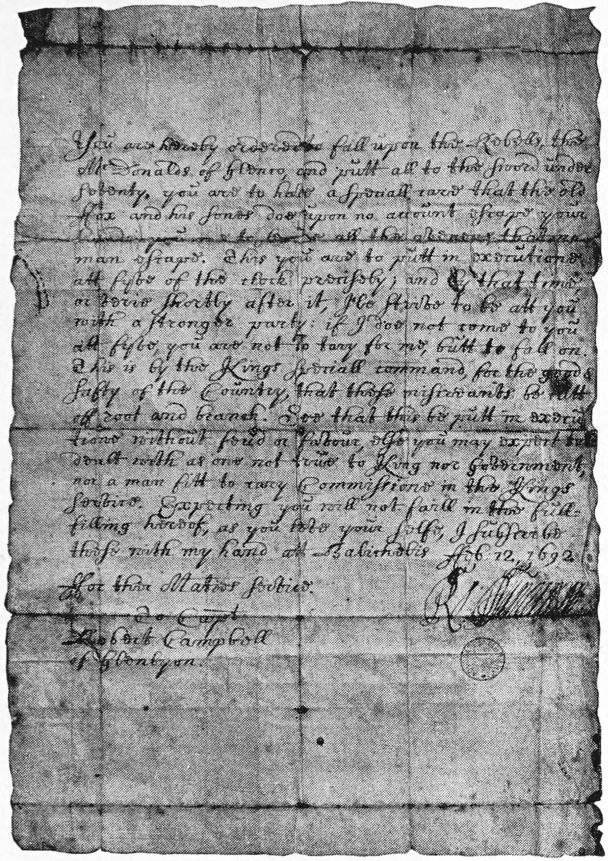 You are hereby ordered to fall upon the Rebells, the
McDonalds of Glenco, and putt all to the sword under
seventy. you are to have a speciall care that the old
ffox and his sones doe upon no account escape your
hands, you are to secure all the avenues that no
man escape. This you are to putt in executione
att fyve of the clock precisely; and by that time
or verie shortly after it, I'le strive to be att you
with a stronger party: if I doe not come to you
att fyve, you are not to tary for me, butt to fall on.
This is by the Kings speciall command, for the good &
safty of the Country, that these miscreants be cutt
off root and branch. See that this be putt in execu
tione without feud or favour, else you may expect to be
dealt with as one not true to King nor Government,
nor a man fitt to cary Commissione in the Kings
service. Expecting you will not faill in the full-
filling hereof, as you love your selfe, I subscribe
these with my hand att Balicholis ffeb: 12, 1692
ffor ther Maties service.
To Capt
Robert Campbell
of Glenlyon.